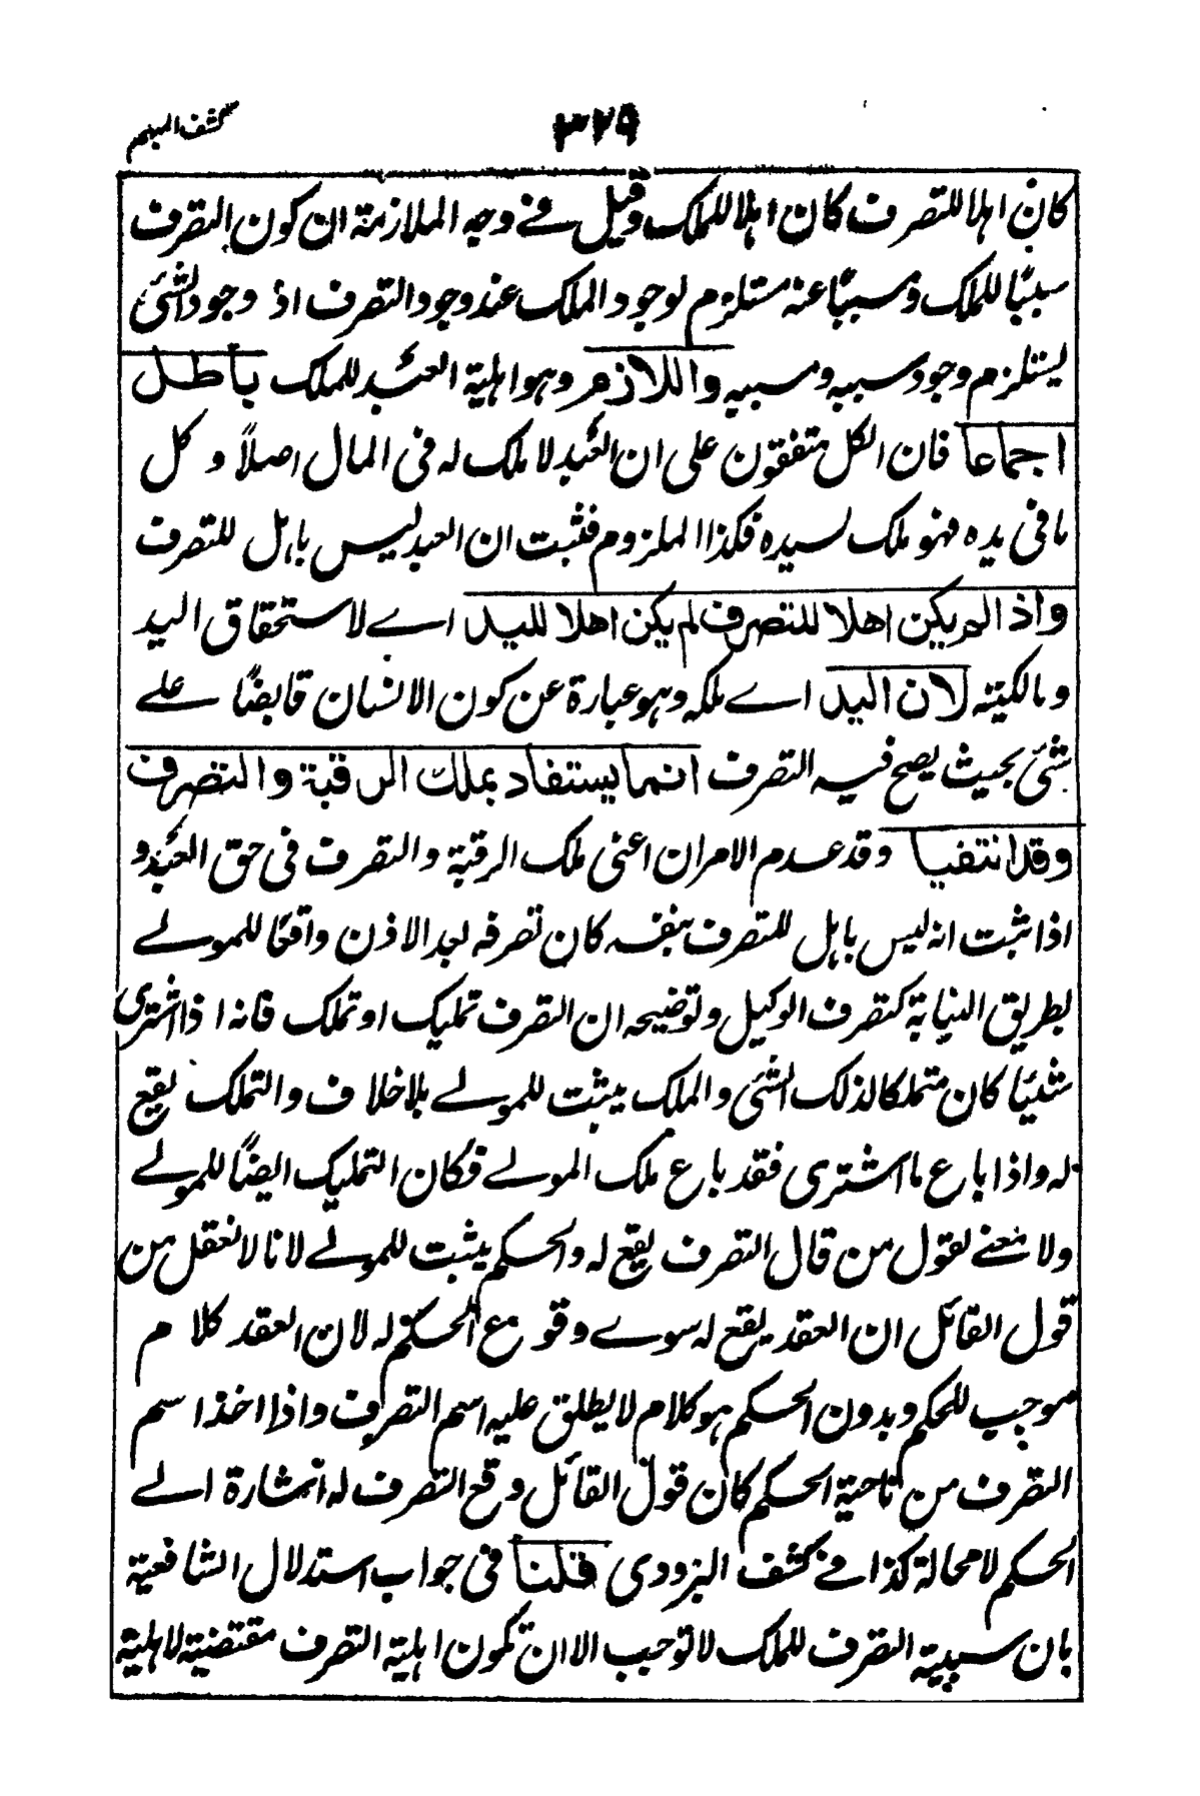 كشف المبهم
٣٢٩
كان اهلا للتصرف كان اهلا للملك وقيل فے وجه الملازمة ان كون التصرف
سببًا للملك ومسببًا عنه مستلزم لوجود الملك عند وجود التصرف اذ وجود الشئ
يستلزم وجود سببه ومسببه واللازم وهو اهلية العبد للملك باطل
اجماعا فان الكل متفقون على ان العبد لا ملك له فى المال اصلاً و كل
ما فى يده فهو ملك لسيده فكذا الملزوم فثبت ان العبد ليس باهل للتصرف
واذا لم يكن اهلا للتصرف لم يكن اهلا لليد اے لاستحقاق اليد
ومالكيته لان اليد اے ملكه وهو عبارة عن كون الانسان قابضًا علے
شئ بحيث يصح فيه التصرف انما يستفاد بملك الرقبة والتصرف
وقد انتفيا وقد عدم الامران اعنى ملك الرقبة والتصرف فى حق العبد و
اذا ثبت انه ليس باهل للتصرف بنفسه كان تصرفه بعد الاذن واقعًا للمولے
بطريق النيابة كتصرف الوكيل وتوضيحه ان التصرف تمليك او تملك فانه اذا اشترى
شئيًا كان متملكا لذلك الشئ والملك يثبت للمولے بلا خلاف والتملك يقع
له واذا باع ما اشترى فقد باع ملك المولے فكان التمليك ايضًا للمولے
ولا معنے لقول من قال التصرف يقع له والحكم يثبت للمولے لانا لا نعقل من
قول القائل ان العقد يقع له سوے وقوع الحكم له لان العقد كلام
موجب للحكم وبدون الحكم هو كلام لا يطلق عليه اسم التصرف واذا اخذ اسم
التصرف من ناحية الحكم كان قول القائل وقع التصرف له اشارة الے
الحكم لا محالة كذا فے كشف البزودى قلنا فى جواب استدلال الشافعية
بان سببية التصرف للملك لا توجب الا ان تكون اهلية التصرف مقتضية لاهلية